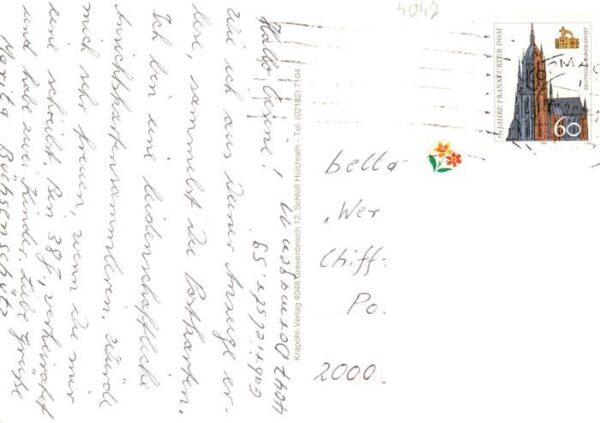 4042
Hallo
wie ich aus Deiner Anzeige er-
lese, sammelst Du Postkarten.
Ich bin eine leidenschaftliche
Ansichtskartensammlerin. Würde
mich sehr freuen, wenn Du mir
eine schreibst. Bin 38 J., verheiratet
und habe zwei Kinder. Liebe Grüße
Krapohl-Verlag 4048 Grevenbroich 12, Schloß Hülchrath - Tel. (02182) 7104
DEUTSCHE BUNDESPOST
JAHRE FRANKFURTER DOM
60
bella
„Wer
Chiff-
Po.
2000